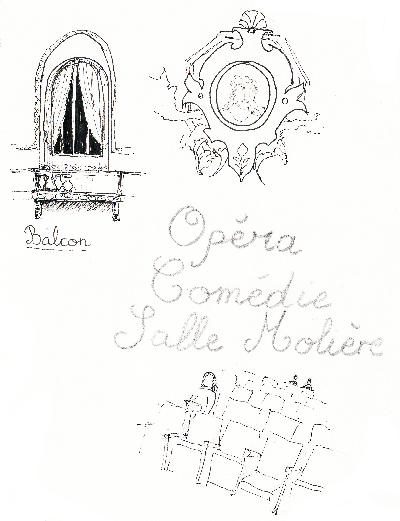 Balcon
Opéra
Comédie
Salle Molière